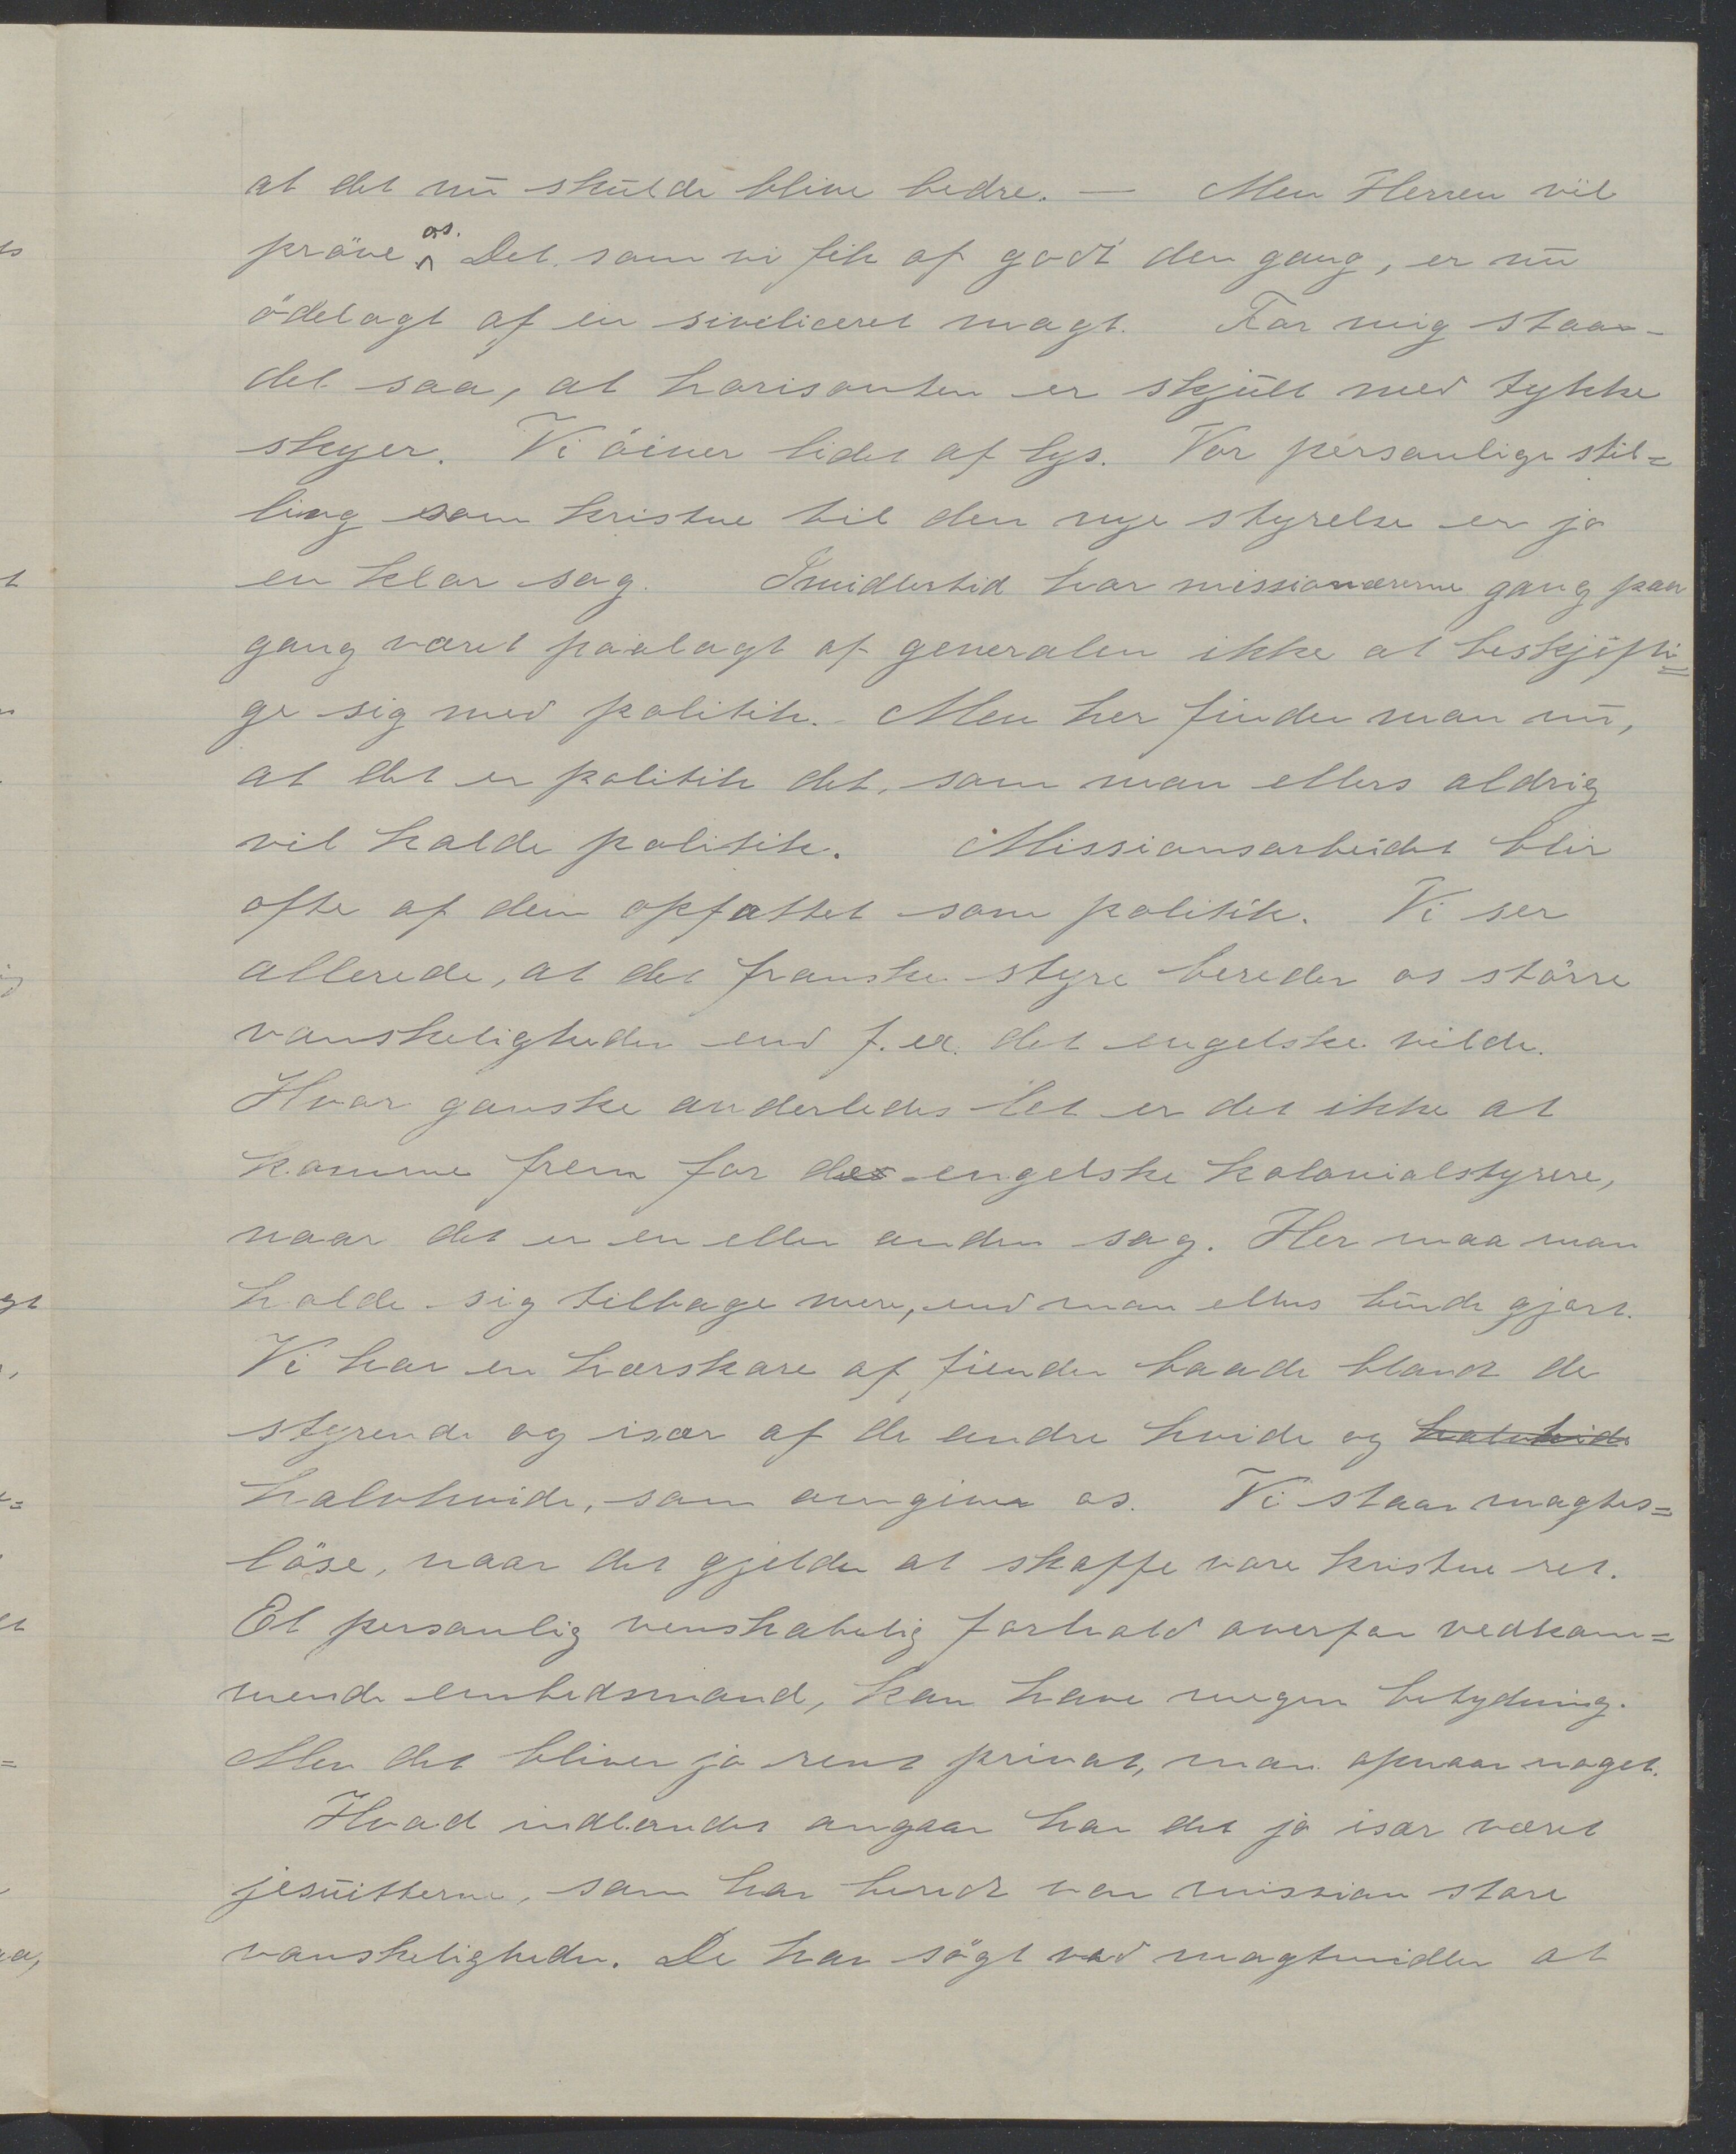 at det nu skulde blive bedre. — Men Herren vil
pröve os. Det, som vi fik af godt den gang, er nu
ödelagt af en siviliceret magt. For mig staar
det saa, at horisonten er skjult med tykke
skyer. Vi öiner lidet af lys. Vor personlige stil=
ling som kristne til den nye styrelse er jo
en klar sag. Imidlertid har missionærerne gang paa
gang været paalagt af generalen ikke at beskjöfti=
ge sig med politik. Men her finder man nu,
at det er politik det, som man ellers aldrig
vil kalde politik. Missionsarbeidet blir
ofte af dem opfattet som politik. Vi ser
allerede, at det franske styre bereder os större
vanskeligheder end f. ex. det engelske vilde.
Hvor ganske anderledes let er det ikke at
komme frem for de engelske kolonialstyrere,
naar det er en eller anden sag. Her maa man
holde sig tilbage mere, end man ellers burde gjort.
Vi har en hærskare af fiender baade blandt de
styrende og især af de andre hvide og halvhvide
halvhvide, som omgiver os. Vi staar magtes=
löse, naar det gjelder at skaffe vore kristne ret.
Et personlig venskabelig forhold overfor vedkom=
mende embedsmand, kan have megen betydning.
Men det bliver jo rent privat, man opnaar noget.
Hvad indlandet angaar har det jo især været
jesuitterne, som har beredt vor mission store
vanskeligheder. De har sögt ved magtmidler at